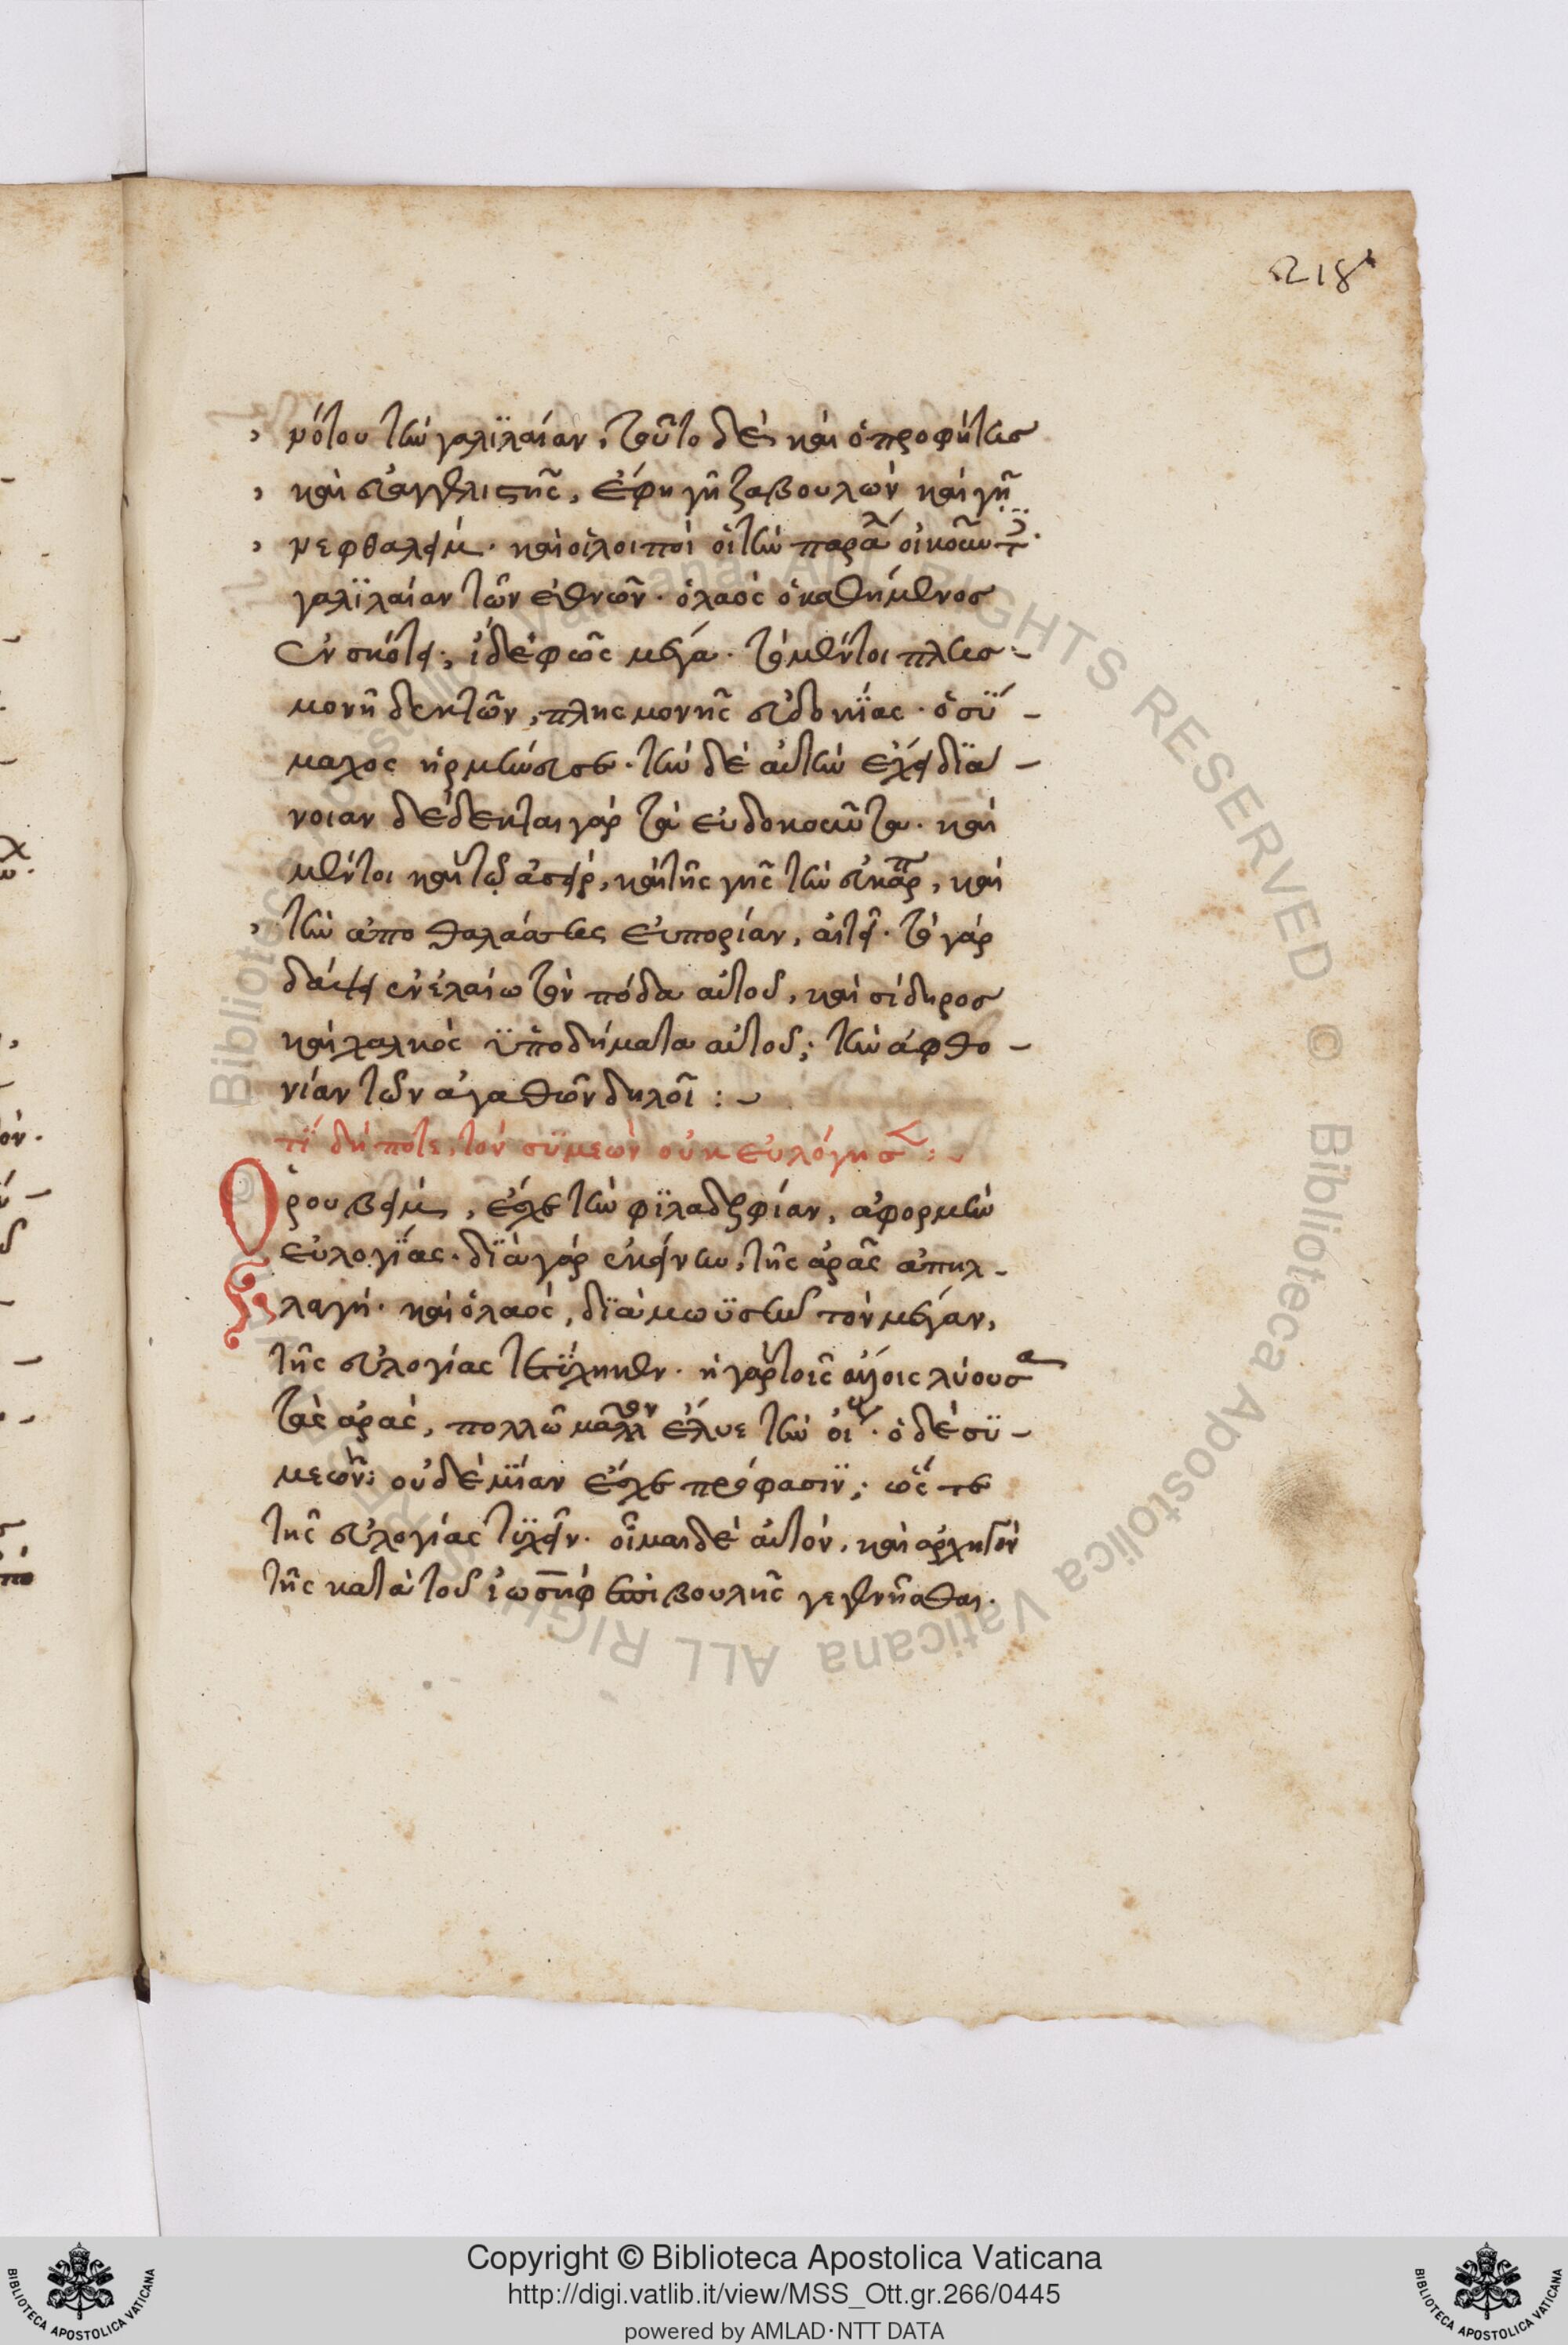 218
νότου τὴν γαλϊλαίαν, τοῦτο δὲ καὶ ὁ προφήτης
καὶ εὐαγγελιστὴς, ἔφη γῆ ζαβουλὼν καὶ γῆ
νεφθαλεὶμ. καὶ οἱ λοιποὶ οἱ τὴν παραλ οἰκοῦντ.
γαλϊλαίαν τῶν ἐθνῶν. ὁ λαὸς ὁ καθήμενος
ἐν σκότει, ἴδε φῶς μέγα. τὸ μέντοι πλησ-
μονὴ δεκτῶν, πλησμονῆς εὐδοκΐας. ὁ σύ-
μαχος ἡρμήνευσε. τὴν δὲ αὐτὴν ἔχει διά-
νοιαν δέδεκται γὰρ τὰ εὐδοκοῦντα. καὶ
μέντοι καὶ τῶ ἀσείρ, καὶ τῆς γῆς τὴν εὐκαρπ, καὶ
τὴν ἀπο θαλάσσης εὐπορίαν, αἰτεῖ. τὸ γὰρ
βάψει ἐν ἐλαίω τὸν πόδα αὐτοῦ, καὶ σίδηρος
καὶ χαλκὸς ϋποδήματα αὐτοῦ; τὴν ἀφθο-
νίαν τῶν ἀγαθῶν δηλοῖ :-
τί δήποτε, τὸν συμεὼν οὐκ εὐλόγησ :-
Ὁ ρουβεὶμ, ἔσχε τὴν φϊλαδελφίαν, ἀφορμὴν
εὐλογΐας. διὰ γὰρ ἐκείνην, τῆς ἀρᾶς ἀπηλ-
λαγη. καὶ ὁ λαὸς, διὰ μωϋσῆν τὸν μέγαν,
τῆς εὐλογίας τετύχηκεν. ἡ γὰρ τοῖς ἄλλοις λύουσα
τὰς ἀρὰς, πολλῶ μᾶλλον ἔλυε τὴν οἰκ. ὁ δὲ συ-
μεὼν; οὐδεμΐαν ἔσχε πρόφασιν; ὥστε
τῆς εὐλογίας τυχεῖν. οἶμαι δὲ αὐτὸν, καὶ ἀρχηγὸν
τῆς κατὰ τοῦ ἰωσὴφ ἐπιβουλῆς γεγενῆσθαι.
Copyright © Biblioteca Apostolica Vaticana
http://digi.vatlib.it/view/MSS_Ott.gr.266/0445
powered by AMLAD·NTT DATA